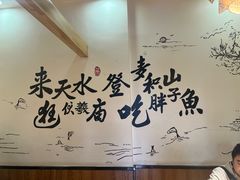 来天水 登麦积山
逛伏羲庙 吃胖子魚